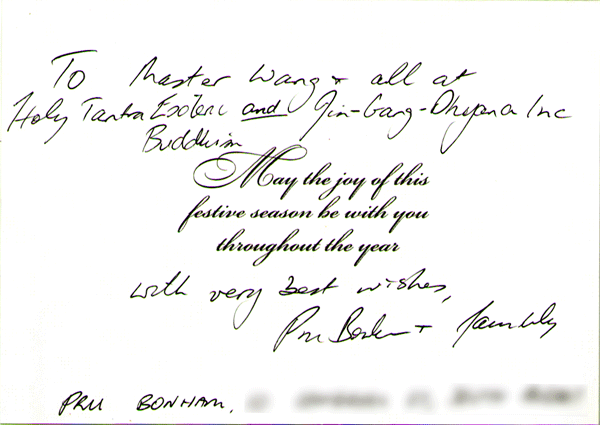 To Master Wang + all at
Holy Tantra Esoteric and Jin-Gang-Dhyana Inc
Buddhism
May the joy of this
festive season be with you
throughout the year
with very best wishes,
Pru Bonham + family
PRU BONHAM,